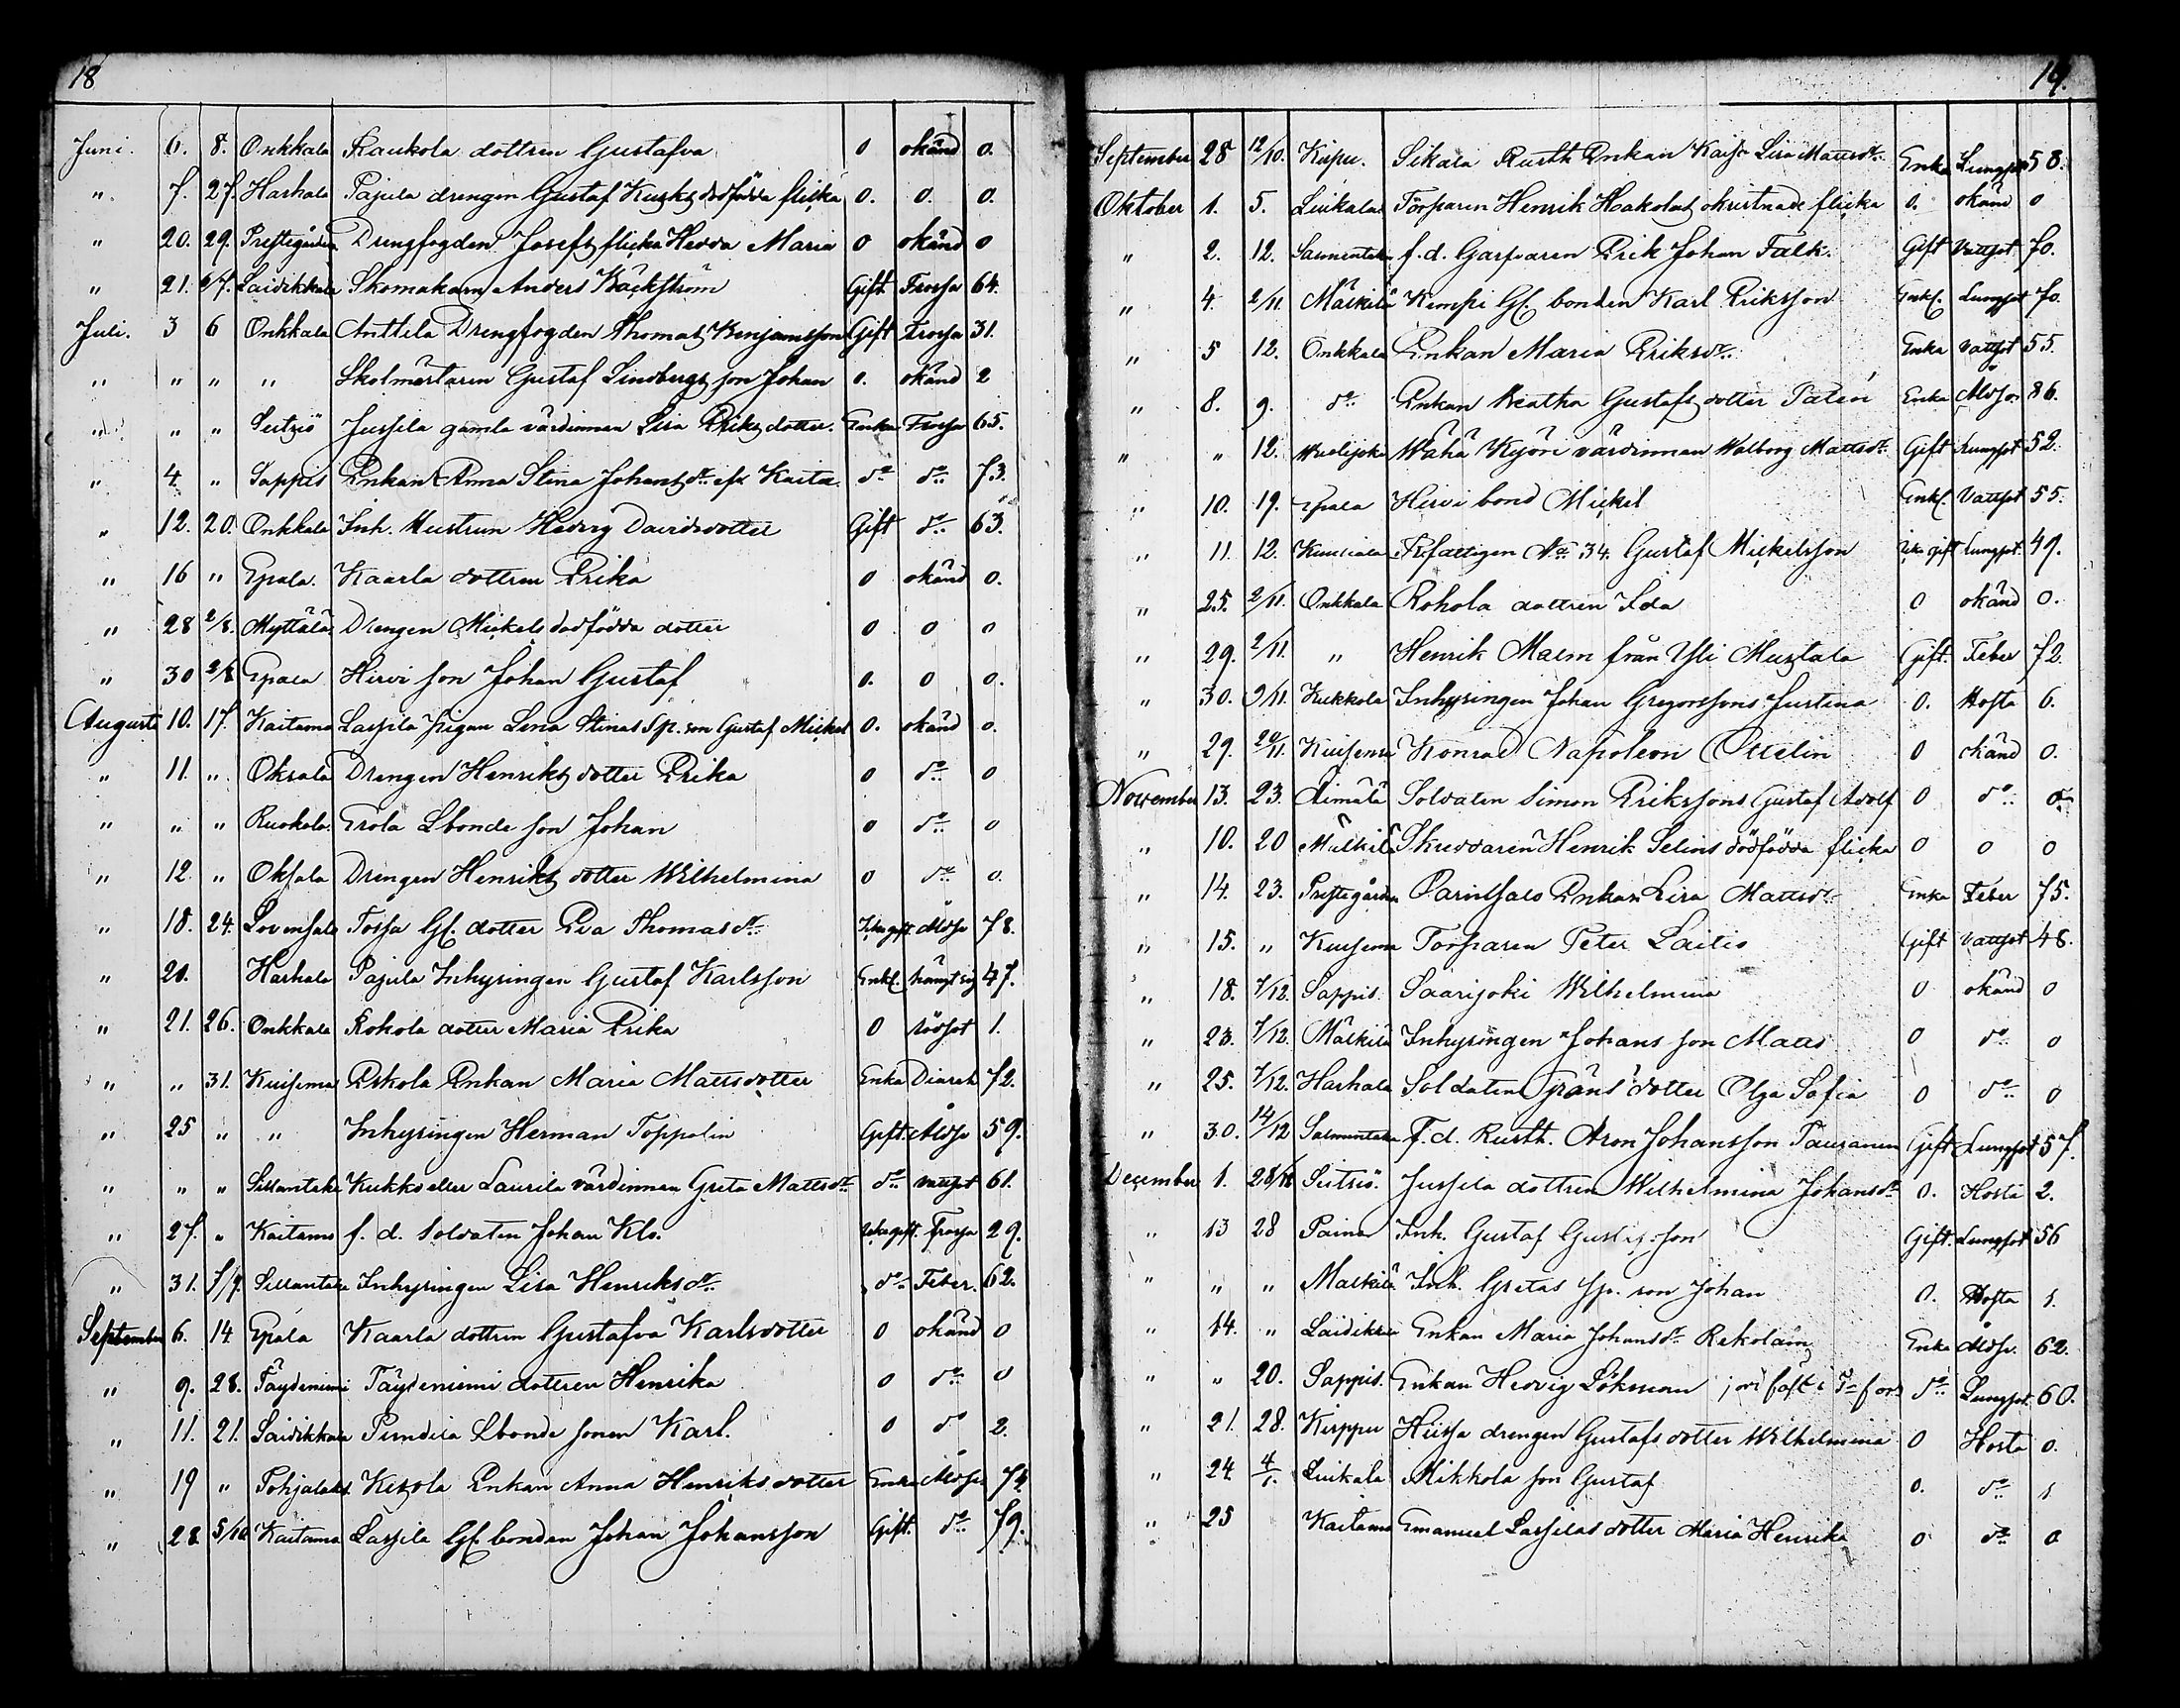 18
Juni. 6. 8. Onkkala Raukola dottren Gustafva 0 okänd 0.
" 7. 27. Harhala Pajula drengen Gustaf dödfödda flicka 0. 0. 0.
" 20. 29. Prestegården Drengfogden Josefs flicka Hedda Maria 0 okänd 0
" 21. 2/7. Laidikkala Skomakarn Anders Bäckström Gift Frossa 64.
Juli. 3 6 Onkkala Anttila Drengfogden Thomas Benjamsson Gift Frossa 31.
" " " " Skolmästaren Gustaf Lindbergs son Johan 0. okänd 2
" " " Seitziö Jussila gamla värdinnan Lisa Eriks dotter. Enka Frossa 65.
" 4. " Sappis Enkan Anna Stina Johans dr. Kaita do do 73.
" 12. 20. Onkkala Inh. Hustrun Hedvig Davidsdotter Gift do 63.
" 16 " Epala. Kaarla dottren Erika 0 okänd 0.
" 28 2/8. Myttälä Drengen Mickels dödfödda dotter 0 0 0
" 30 2/8 Epala Hirvi son Johan Gustaf 0. 0 0.
Augusti 10. 17. Kaitamo Lassila pigan Lena Stinas Sp. son Gustaf Mickel 0. okänd 0.
" 11. " Oksala Drengen Henriks dotter Erika 0 do 0
" " " Ruokola. Erola Lbonde son Johan 0 do 0
" 12. " Oksala Drengen Henriks dotter Wilhelmina 0 do 0.
" 18. 24. Lovensalo Tossa Gf. dotter Eva Thomasdr. Icke gift Åldr. 78.
" 20. Harhala Pajula Inhysingen Gustaf Karlsson Enkl. hängt sig 47.
" 21. 26. Onkkala Rohola dotter Maria Erika 0 rödsot 1.
" " 31. Kuisema Eskola Enkan Maria Mattsdotter Enka Diareh 72.
" 25 " " Inhysingen Herman Toppolin Gift. Åldr 59.
" " " Sillantaka Kukks eller Laurila värdinnan Greta Mattsdr. do vattsot 61.
" 27. " Kaitamo f. d. Soldaten Johan Klo. Icke gift. Frossa 29.
" 31. 7/9. Sillantaka Inhysingen Lisa Henriksdr. do Feber. 62.
September 6. 14 Epala Kaarla dottren Gustafva Karlsdotter 0 okänd 0
" 9. 28. Täydenimi Täydenimi dottren Henrika 0 do 0
" 11. 21. Laidikkala Pundila Lbonde sonen Karl. 0 do 2.
" 19 " Pohjalaks. Ketzola Enkan Anna Henriksdotter Enka Åldr. 74.
" 28 5/10 Kaitama Lassila Gf. bonden Johan Johansson Gift. do 79.
19.
September 28 12/10. Kirpu. Sikala Rusth Enkan Kajsa Lisa Mattsdr. Enka Lungsot 58.
Oktober 1. 5. Luikala Torparen Henrik Haakolas okristnade flicka 0. okänd 0
" 2. 12. Salmentaka f. d. Garfvaren Erik Johan Falk. Gift Vattsot 70.
" 4. 2/11. Mälkilä Kemppi Gf. bonden Karl Eriksson Enkl. Lungsot 70.
" 5 12. Onkkala Enkan Maria Eriksdr. Enka Vattsot 55.
" 8. 9. do Enkan Beatha Gustafs dotter Palén Enka Åldr. 86.
" " 12. Wuolijoki Wähä Kyörö värdinnan Walborg Mattsdr. Gift Lungsot 52.
" 10. 19. Epala Hirvi bond Mickel Enkl. Vattsot 55.
" 11. 12. Kuuliala Fattigen No 34. Gustaf Mickelsson Icke gift Lungsot. 49.
" 25. 2/11. Onkkala Rohola dottren Ida 0 okänd 0.
" 29. 2/11. " Henrik Malm från Yli Mustala Gift. Feber 72.
" 30. 9/11. Kukkola Inhysingen Johan Gregorssons Justina 0. Hosta 6.
" 29. 20/11. Kuisema Konrad Napoleon Ottelin 0 okänd 0.
November 13. 23. Äimälä Soldaten Simon Erikssons Gustaf Adolf 0 do 0
" 10. 20 Mälkilä Skreddaren Henrik Selins dödfödda flicka 0 0 0
" 14. 23. Prestegården Enkan Lisa Mattsdr. Enka Feber 75.
" 15. " Kuisema Torparen Peter Laitis Gift Vattsot 48.
" 18. 7/12. Sappis. Saarijoki Wilhelmina 0 okänd 0
" 23. 7/12. Mälkilä Inhysingen Johans son Matts 0 do 0
" 25. 7/12. Harhala Soldaten Gräns dotter Olga Sofia 0 do 0
" 30. 14/12 Salmentaka f. d. Rusth. Aron Johansson Pausanen Gift Lungsot 57.
December 1. 28/12 Seitziö. Jussila dottren Wilhelmina Johansdr 0. Hosta 2.
" 13 28 Painno Inh. Gustaf Gustafsson Gift. Lungsot 56
" " " Mälkilä Inh. Gretas Sp. son Johan 0. Hosta 1.
" 14. " Laidikkala Enkan Maria Johansdr. Rekolain Enka Åldr. 62.
" " 20. Sappis. Enkan Hedvig Lökman do Lungsot 60.
" 21. 28. Kirppu Hiissa drengen Gustafs dotter Wilhelmina 0 Hosta 0.
" 24. 4/1. Luikala Mikkola son Gustaf 0. do 1
" 25 Kaitamo Emanuel Lassilas dotter Maria Henrika 0 do 0